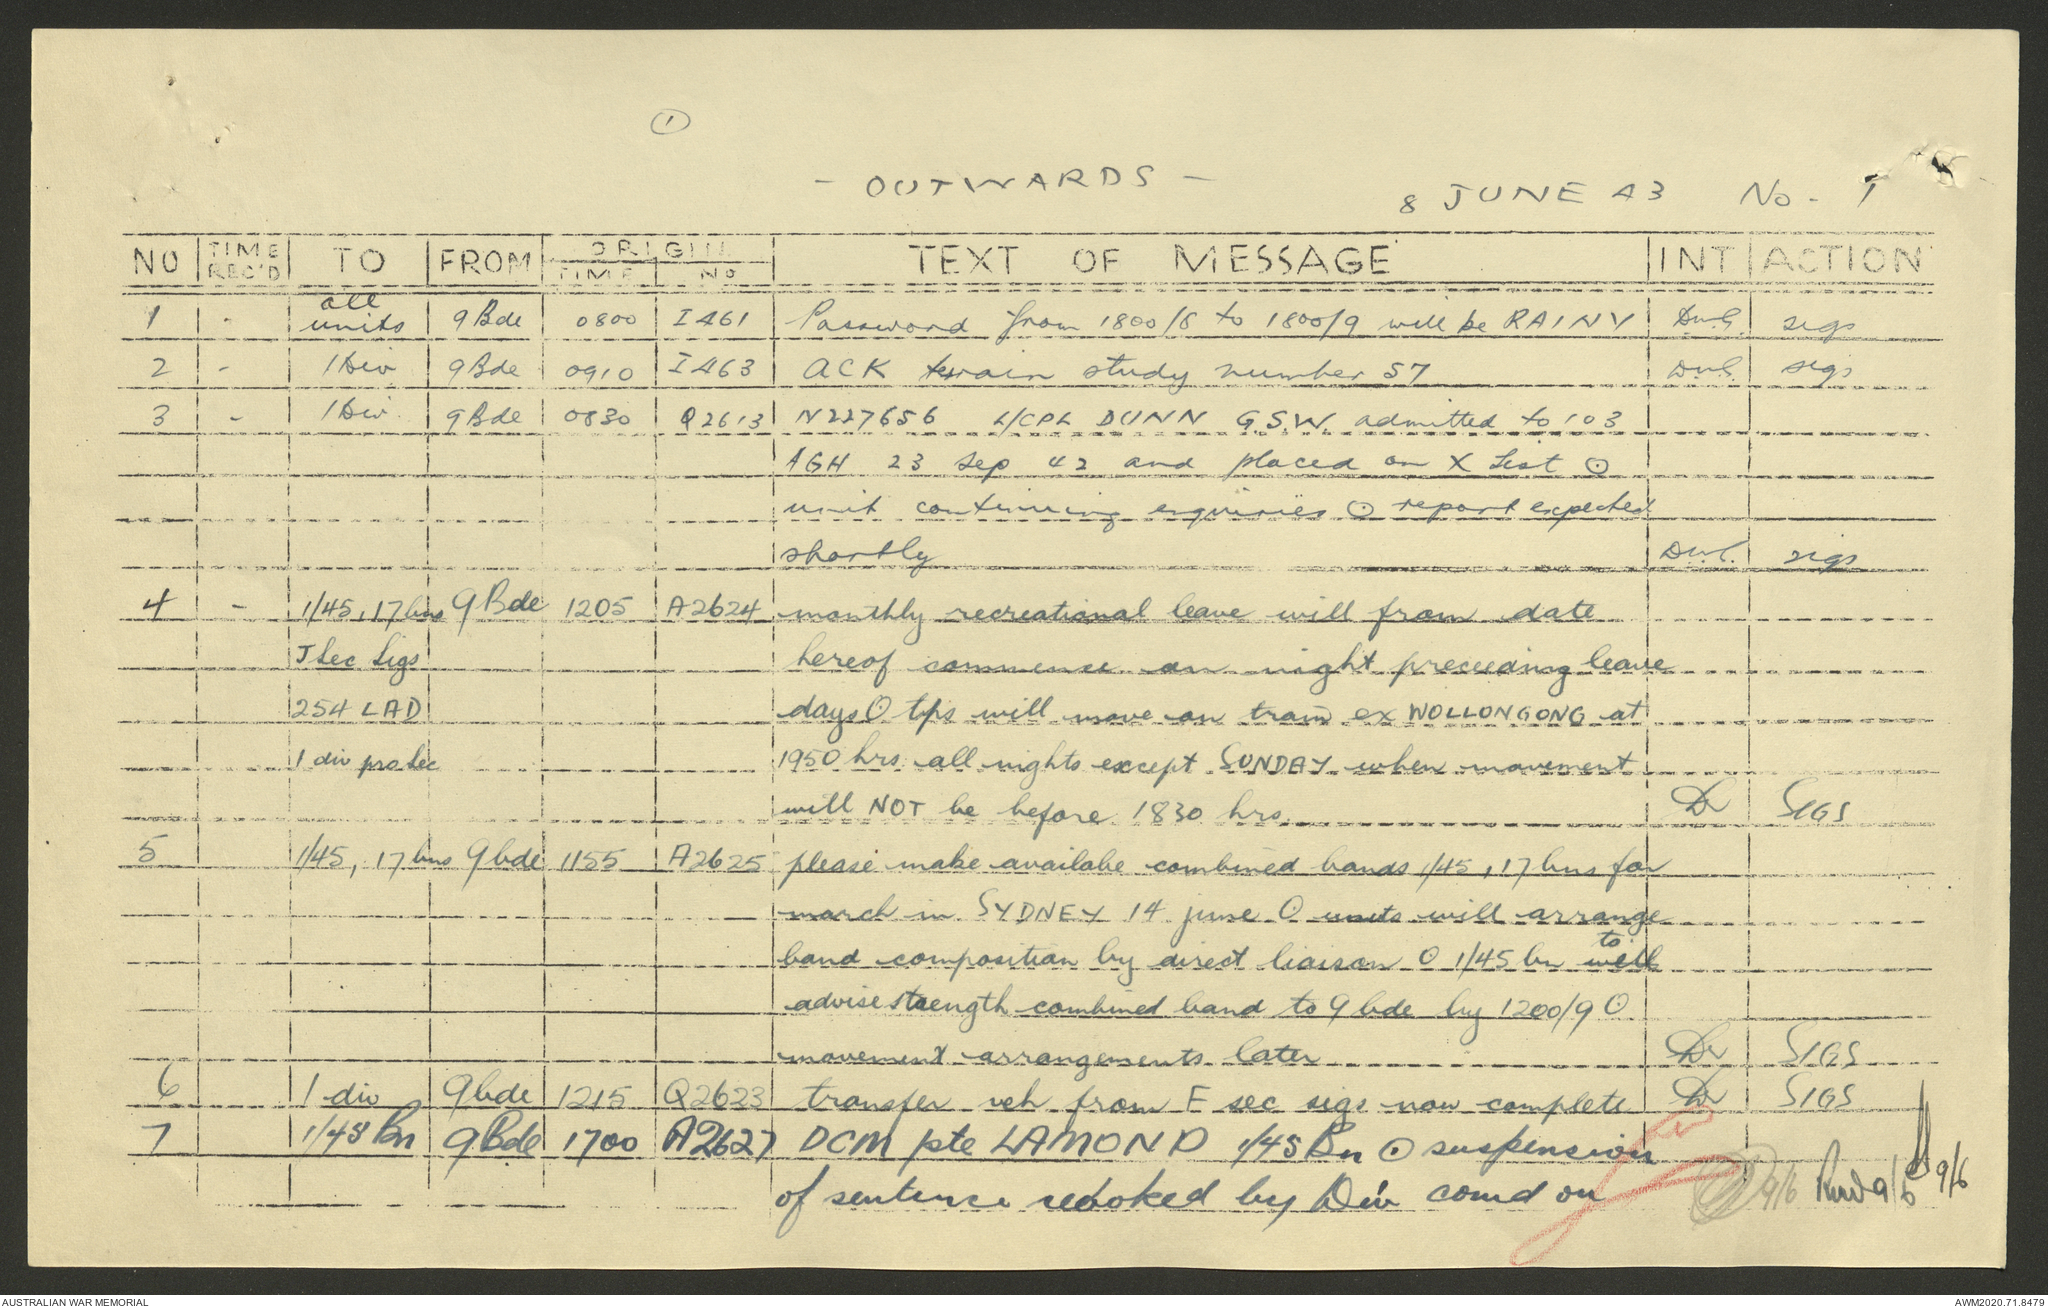 1
- OUTWARDS -
8 JUNE 43 No. 1
NO TIME REC'D TO FROM ORIGIN TIME No TEXT OF MESSAGE INT ACTION
1 - all units 9 Bde 0800 I461 Password from 1800/8 to 1800/9 will be RAINY sigs
2 - 1 Div 9 Bde 0910 I463 ACK terrain study number 57 sigs
3 - 1 Div. 9 Bde 0830 Q2613 N227656 L/CPL DUNN G.S.W. admitted to 103
AGH 23 Sep 42 and placed on X List ⊙
unit continuing enquiries ⊙ report expected
shortly sigs
4 - 1/45, 17 bns 9 Bde 1205 A2624 monthly recreational leave will from date
J Sec Sigs hereof commence on night preceeding leave
254 LAD days ⊙ tps will move on train ex WOLLONGONG at
1 div pro sec 1950 hrs all nights except SUNDAY when movement
will NOT be before 1830 hrs SIGS
5 1/45, 17 bns 9 bde 1155 A2625 please make availabe combined bands 1/45, 17 bns for
march in SYDNEY 14 june ⊙ units will arrange
band composition by direct liaison ⊙ 1/45 bn to
advise strength combined band to 9 bde by 1200/9 ⊙
movement arrangements later SIGS
6 1 div 9 bde 1215 Q2623 transfer veh from F sec sigs now complete SIGS
7 1/45 Bn 9 Bde 1700 A2627 DCM pte LAMOND 1/45 Bn ⊙ suspension
of sentence revoked by Div comd on 9/6 9/6 9/6
AUSTRALIAN WAR MEMORIAL
AWM2020.71.8479